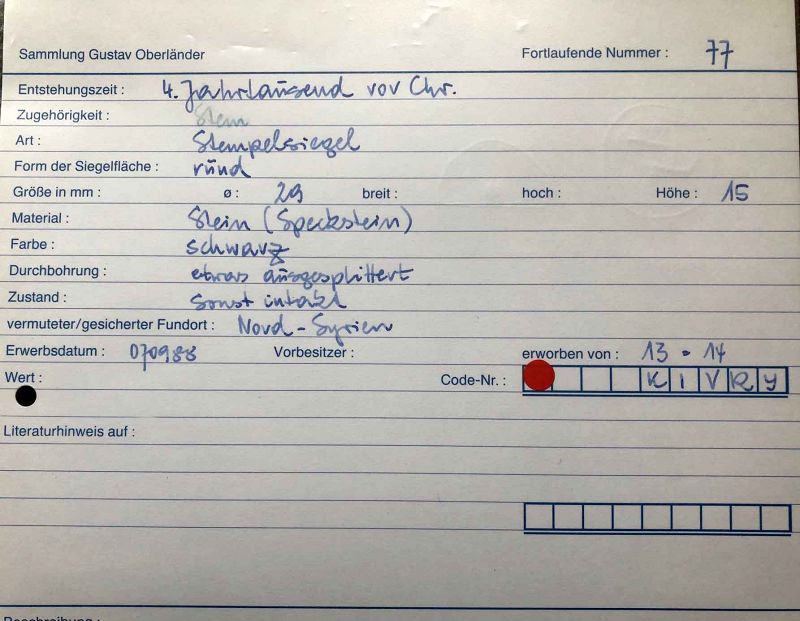 Sammlung Gustav Oberländer Fortlaufende Nummer : 77
Entstehungszeit : 4. Jahrtausend vor Chr.
Zugehörigkeit : Stein
Art : Stempelsiegel
Form der Siegelfläche : rund
Größe in mm : ø : 29 breit : hoch : Höhe : 15
Material : Stein (Speckstein)
Farbe : schwarz
Durchbohrung : etwas ausgesplittert
Zustand : sonst intakt
vermuteter/gesicherter Fundort : Nord-Syrien
Erwerbsdatum : 070988 Vorbesitzer : erworben von : 13 - 14
Wert : Code-Nr. : K I V R Y
Literaturhinweis auf :
Beschreibung :